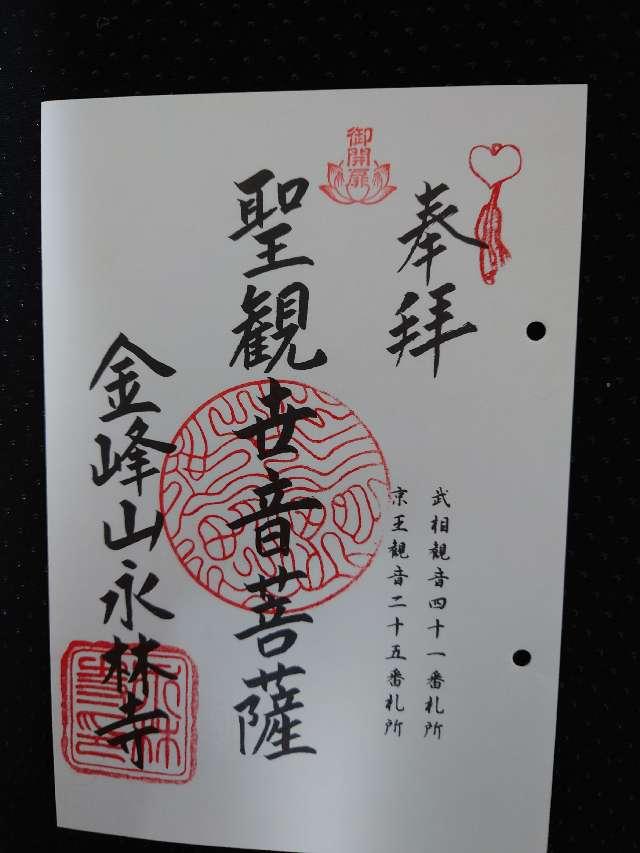 奉拝
武相観音四十一番札所
京王観音二十五番札所
御開扉
聖観世音菩薩
金峰山永林寺